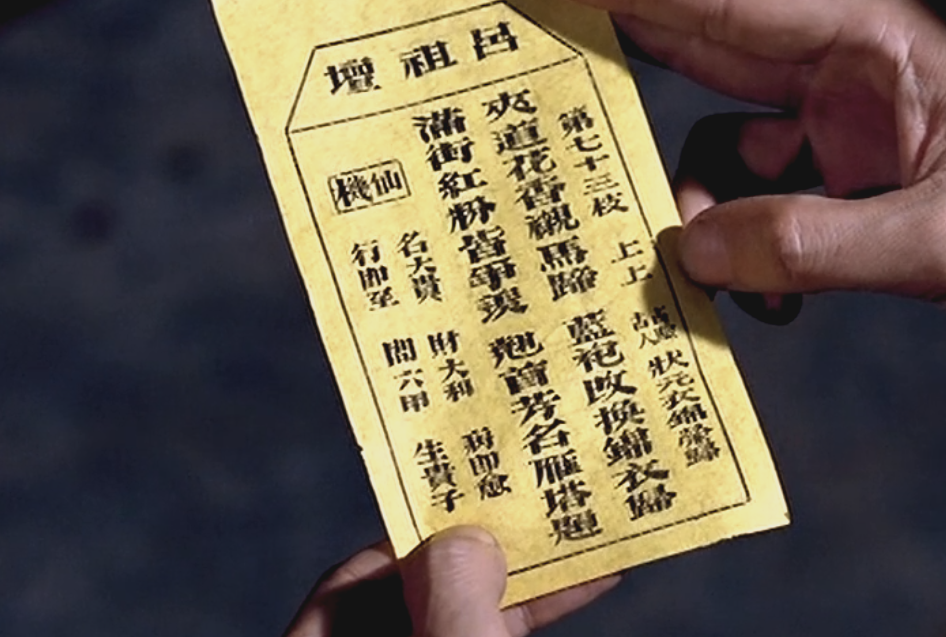 呂祖壇
第七十三枝 上上 古人 狀元衣錦榮歸
夾道花香襯馬蹄 藍袍改換錦衣歸
滿街紅粉皆爭羨 翹首芳名雁塔題
仙機
名大貴 財大利 病即愈
行即至 問六甲 生貴子